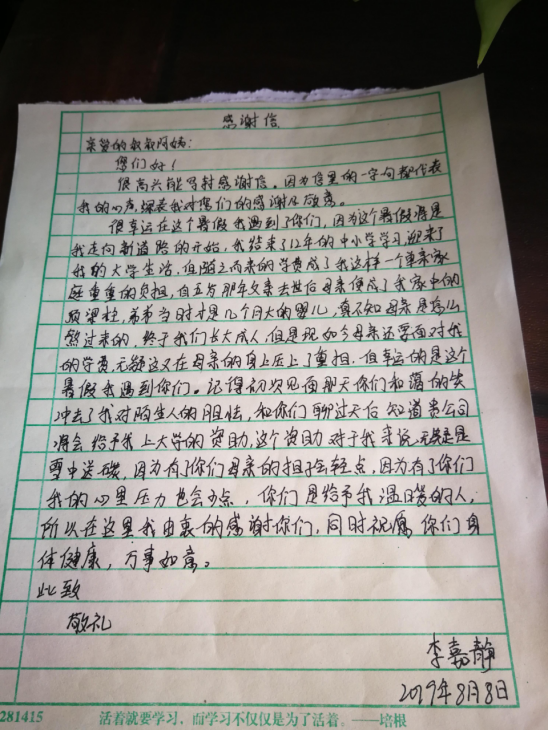 感谢信
亲爱的叔叔阿姨：
您们好！
很高兴能写封感谢信。因为信里的一字句都代表
我的心声，深表我对您们的感谢及敬意。
很幸运在这个暑假我遇到了你们，因为这个暑假将是
我走向新道路的开始，我结束了12年的中小学学习，迎来了
我的大学生活，但随之而来的学费成了我这样一个单亲家
庭重重的负担，自五岁那年父亲去世后母亲便成了我家中的
顶梁柱，弟弟当时才是几个月大的婴儿，真不知母亲是怎么
熬过来的，终于我们长大成人，但是现如今母亲还要面对我
的学费，无疑这又在母亲的身上压上了重担，但幸运的是这个
暑假我遇到你们。记得初次见面那天你们和蔼的笑
冲去了我对陌生人的胆怯，和你们聊过天后知道贵公司
将会给予我上大学的资助，这个资助对于我来说无疑是
雪中送碳，因为有了你们母亲的担子会轻点，因为有了你们
我的心里压力也会少点，你们是给予我温暖的人，
所以在这里我由衷的感谢你们，同时祝愿你们身
体健康，万事如意。
此致
敬礼
李嘉静
2019年8月8日
281415 活着就要学习，而学习不仅仅是为了活着。——培根